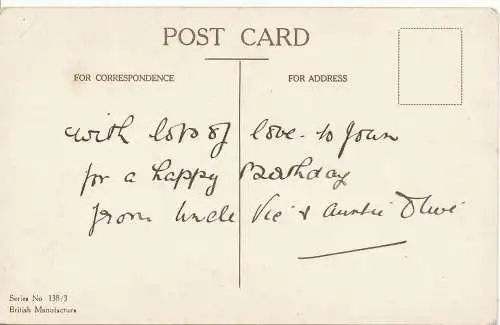 POST CARD
FOR CORRESPONDENCE
FOR ADDRESS
with lots of love to Joan
for a happy Birthday
from Uncle Vic & Auntie Olive
Series No 138/3
British Manufacture